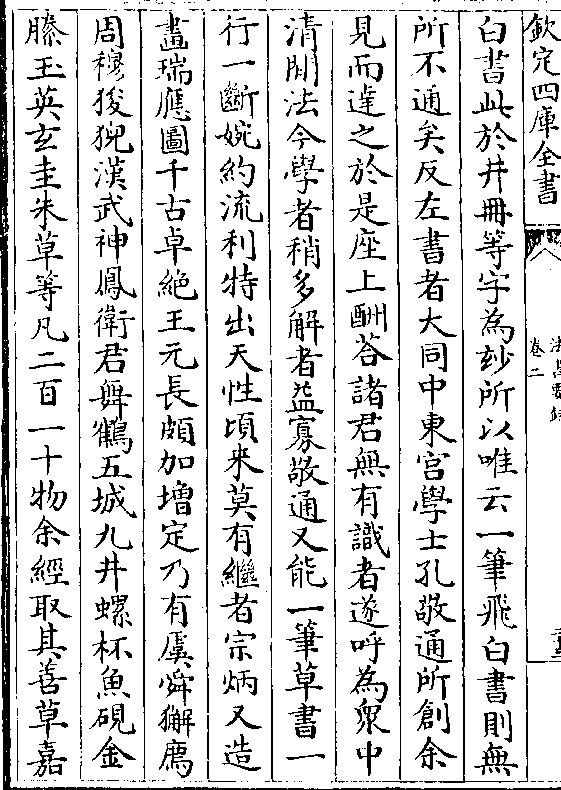 欽定四庫全書
卷二
白書此於井冊等字為玅所以唯云一筆飛白書則無
所不通矣反左書者大同中東宮學士孔敬通所創余
見而達之於是座上酬荅諸君無有識者遂呼為衆中
清閒法今學者稍多解者益寡敬通又能一筆草書一
行一斷婉約流利特出天性頃来莫有繼者宗炳又造
畫瑞應圖千古卓絶王元長頗加增定乃有虞舜獬廌
周穆狻猊漢武神鳳衛君舞鶴五城九井螺杯魚硯金
縢玉英玄圭朱草等凡二百一十物余經取其善草嘉